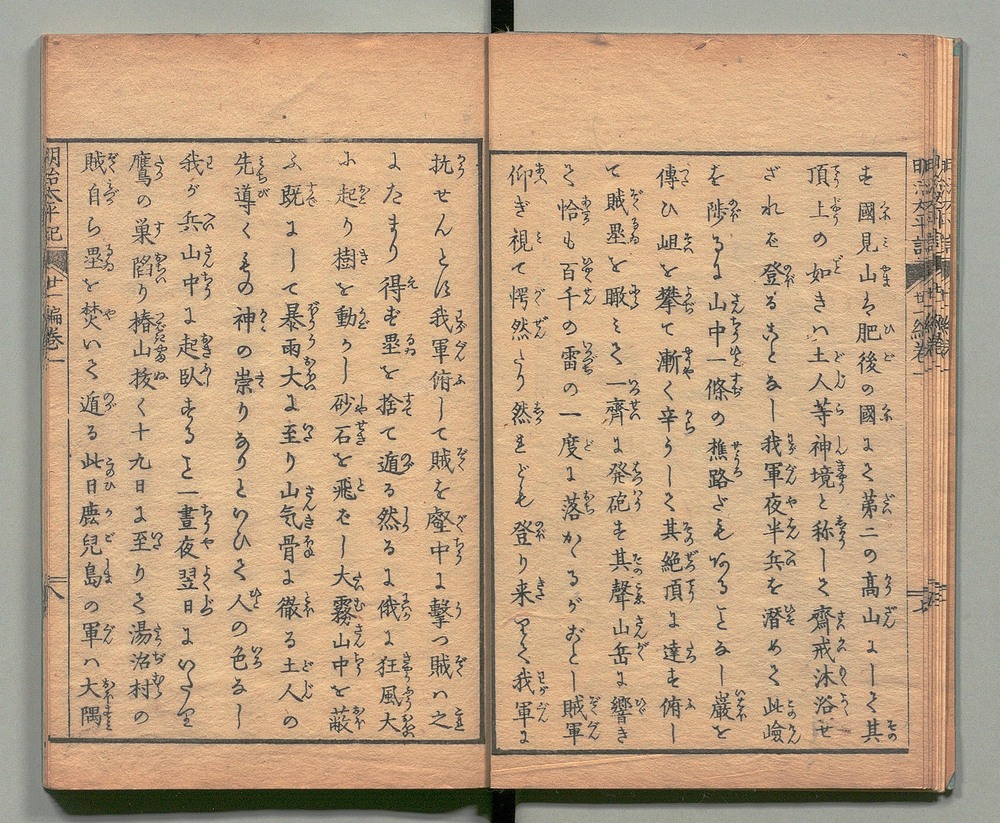 も國見山は肥後の國にて第二の髙山にして其
頂上の如きハ土人等神境と称して齋戒沐浴せ
ざれバ登ることなし我軍夜半兵を潜めて此嶮
を陟るに山中一條の樵路だもあることなし巖を
傳ひ岨を攀て漸く辛うして其絶頂に達す俯し
て賊塁を瞰みて一齊に発砲す其聲山岳に響き
て恰も百千の雷の一度に落かゝるがおとし賊軍
仰ぎ視て愕然たり然れども登り来りて我軍に
抗せんとす我軍俯して賊を壑中に擊つ賊ハ之
にたまり得ず塁を捨て遁る然るに俄に狂風大
に起り樹を動かし砂石を飛ばし大霧山中を蔽
ふ既にして暴雨大に至り山気骨に徹る土人の
先導くもの神の祟りありといひて人の色なし
我が兵山中に起臥すること一晝夜翌日にいたり
鷹の巣陷り椿山拔く十九日に至りて湯治村の
賊自ら塁を焚いて遁る此日鹿兒島の軍ハ大隅
明治太平記 廿一編巻一 八